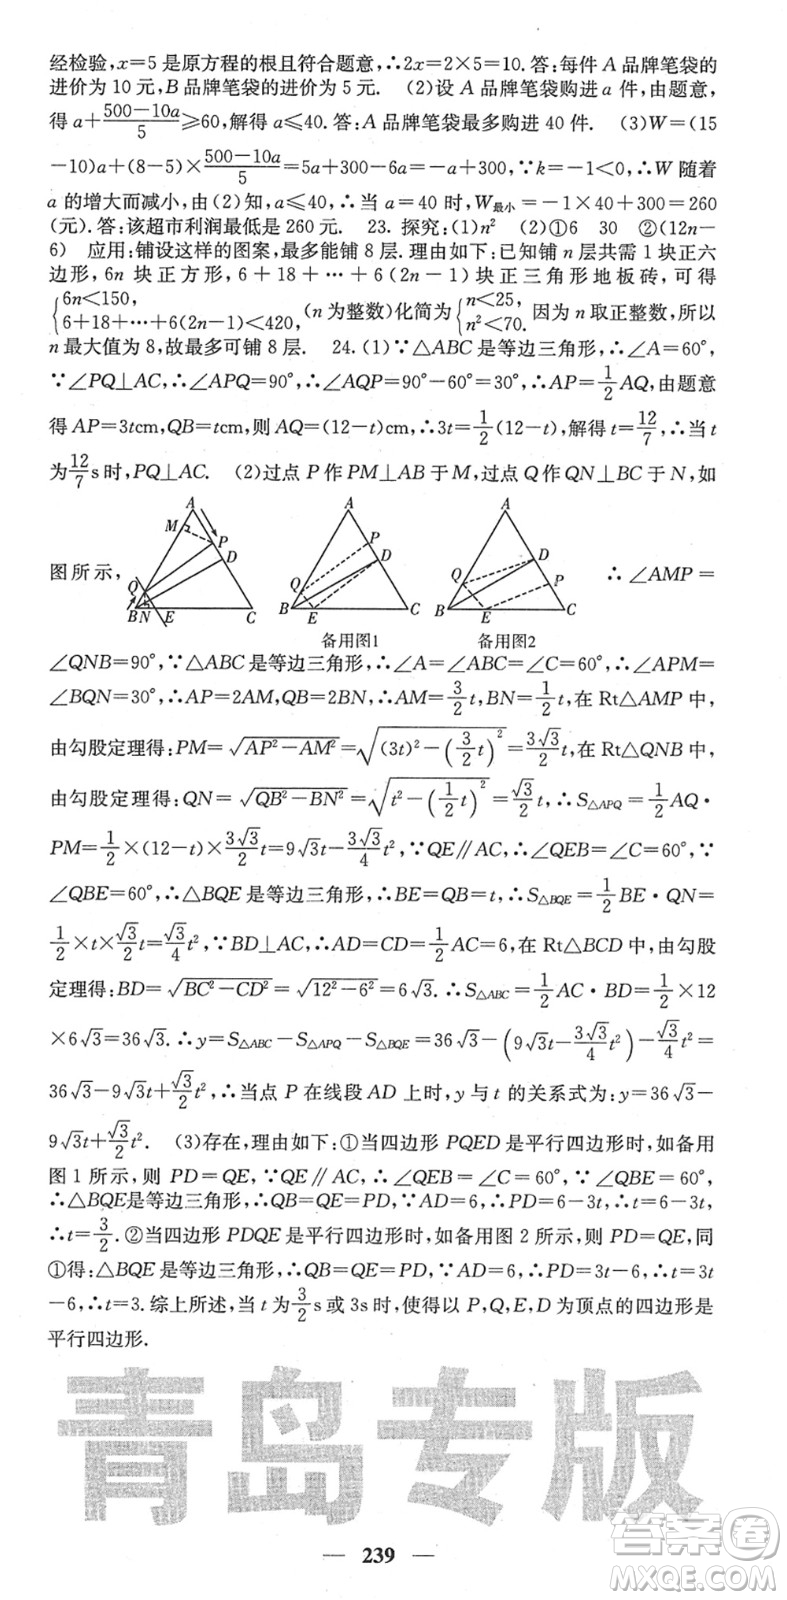 经检验,x=5是原方程的根且符合题意,∴2x=2×5=10.答:每件A品牌笔袋的
进价为10元,B品牌笔袋的进价为5元. (2)设A品牌笔袋购进a件,由题意,
得a+\frac{500-10a}{5}≥60,解得a≤40.答:A品牌笔袋最多购进40件. (3)W=(15
-10)a+(8-5)×\frac{500-10a}{5}=5a+300-6a=-a+300,∵k=-1<0,∴W随着
a的增大而减小,由(2)知,a≤40,∴当a=40时,W最小=-1×40+300=260
(元).答:该超市利润最低是260元. 23. 探究:(1)n² (2)①6 30 ②(12n-
6) 应用:铺设这样的图案,最多能铺8层.理由如下:已知铺n层共需1块正六
边形,6n块正方形,6+18+…+6(2n-1)块正三角形地板砖,可得
{6n<150,
6+18+…+6(2n-1)<420, (n为整数)化简为{n<25, n²<70. 因为n取正整数,所以
n最大值为8,故最多可铺8层. 24. (1)∵△ABC是等边三角形,∴∠A=60°,
∵∠PQ⊥AC,∴∠APQ=90°,∴∠AQP=90°-60°=30°,∴AP=\frac{1}{2}AQ,由题意
得AP=3tcm,QB=tcm,则AQ=(12-t)cm,∴3t=\frac{1}{2}(12-t),解得t=\frac{12}{7},∴当t
为\frac{12}{7}s时,PQ⊥AC. (2)过点P作PM⊥AB于M,过点Q作QN⊥BC于N,如
图所示, ∴∠AMP=
A M P D Q B N E C
A P D Q B E C
备用图1
A D Q P B E C
备用图2
∠QNB=90°,∵△ABC是等边三角形,∴∠A=∠ABC=∠C=60°,∴∠APM=
∠BQN=30°,∴AP=2AM,QB=2BN,∴AM=\frac{3}{2}t,BN=\frac{1}{2}t,在Rt△AMP中,
由勾股定理得:PM=√(AP²-AM²)=√((3t)²-(\frac{3}{2}t)²)=\frac{3√3}{2}t,在Rt△QNB中,
由勾股定理得:QN=√(QB²-BN²)=√(t²-(\frac{1}{2}t)²)=\frac{√3}{2}t,∴S△APQ=\frac{1}{2}AQ·
PM=\frac{1}{2}×(12-t)×\frac{3√3}{2}t=9√3t-\frac{3√3}{4}t²,∵QE∥AC,∴∠QEB=∠C=60°,∵
∠QBE=60°,∴△BQE是等边三角形,∴BE=QB=t,∴S△BQE=\frac{1}{2}BE·QN=
\frac{1}{2}×t×\frac{√3}{2}t=\frac{√3}{4}t²,∵BD⊥AC,∴AD=CD=\frac{1}{2}AC=6,在Rt△BCD中,由勾股
定理得:BD=√(BC²-CD²)=√(12²-6²)=6√3.∴S△ABC=\frac{1}{2}AC·BD=\frac{1}{2}×12
×6√3=36√3.∴y=S△ABC-S△APQ-S△BQE=36√3-(9√3t-\frac{3√3}{4}t²)-\frac{√3}{4}t²=
36√3-9√3t+\frac{√3}{2}t²,∴当点P在线段AD上时,y与t的关系式为:y=36√3-
9√3t+\frac{√3}{2}t². (3)存在,理由如下:①当四边形PQED是平行四边形时,如备用
图1所示,则PD=QE,∵QE∥AC,∴∠QEB=∠C=60°,∵∠QBE=60°,
∴△BQE是等边三角形,∴QB=QE=PD,∵AD=6,∴PD=6-3t,∴t=6-3t,
∴t=\frac{3}{2}.②当四边形PDQE是平行四边形时,如备用图2所示,则PD=QE,同
①得:△BQE是等边三角形,∴QB=QE=PD,∵AD=6,∴PD=3t-6,∴t=3t
-6,∴t=3.综上所述,当t为\frac{3}{2}s或3s时,使得以P,Q,E,D为顶点的四边形是
平行四边形.
青岛专版
— 239 —
答案圈
MXQE.COM